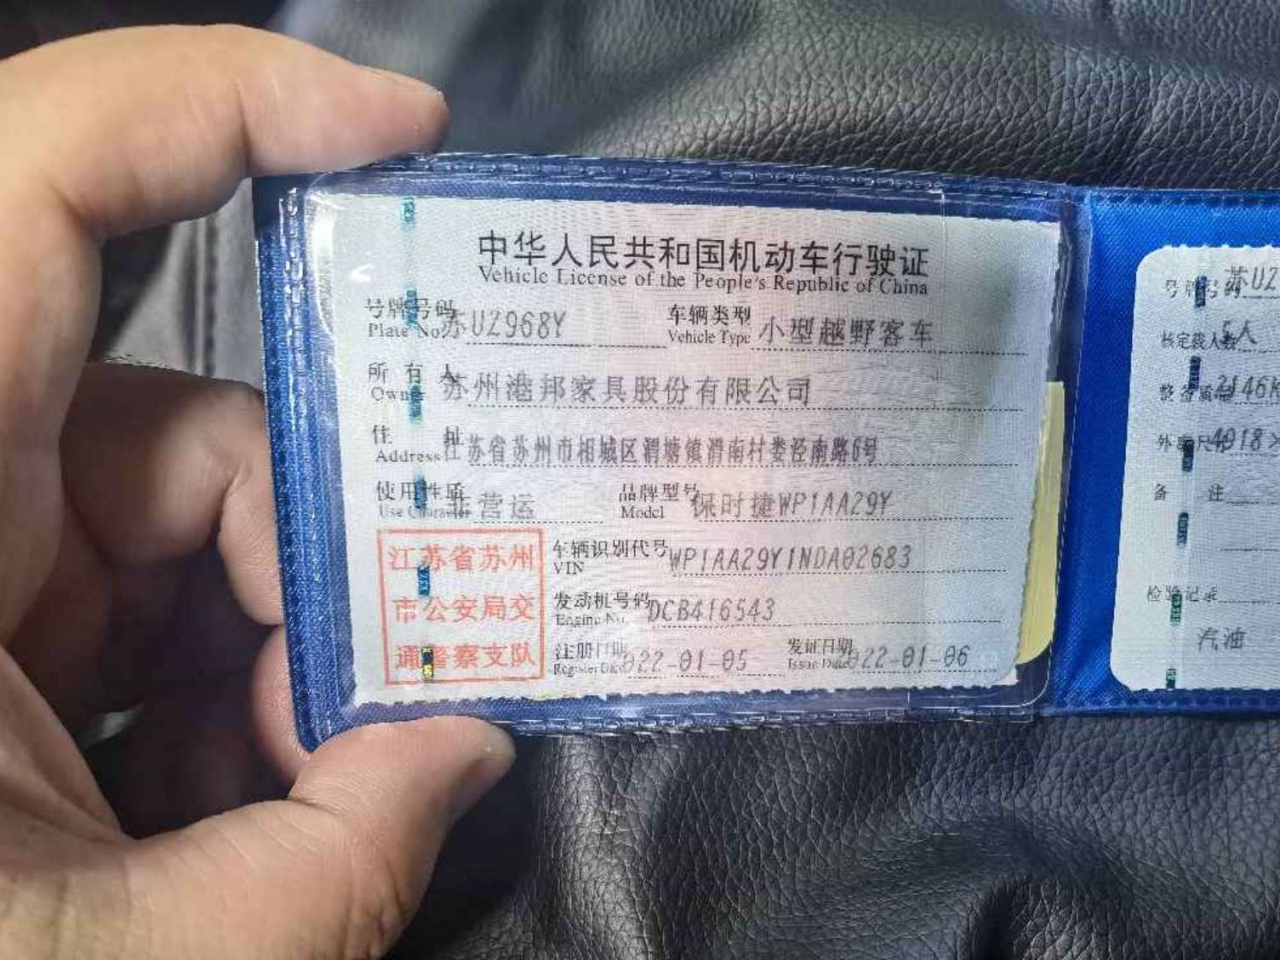 中华人民共和国机动车行驶证
Vehicle License of the People's Republic of China
号牌号码 苏UZ968Y 车辆类型 小型越野客车
Plate No. Vehicle Type
所有人 苏州港邦家具股份有限公司
Owner
住址 江苏省苏州市相城区渭塘镇渭南村娄泾南路6号
Address
使用性质 非营运 品牌型号 保时捷WP1AA29Y
Use Character Model
江苏省苏州
市公安局交
通警察支队
车辆识别代号 WP1AA29Y1NDA02683
VIN
发动机号码 DCB416543
Engine No.
注册日期 022-01-05 发证日期 022-01-06
Register Date Issue Date
号牌号码 苏UZ
核定载人数 5人
整备质量 2146K
外廓尺寸 4918×
备注
检验记录
汽油